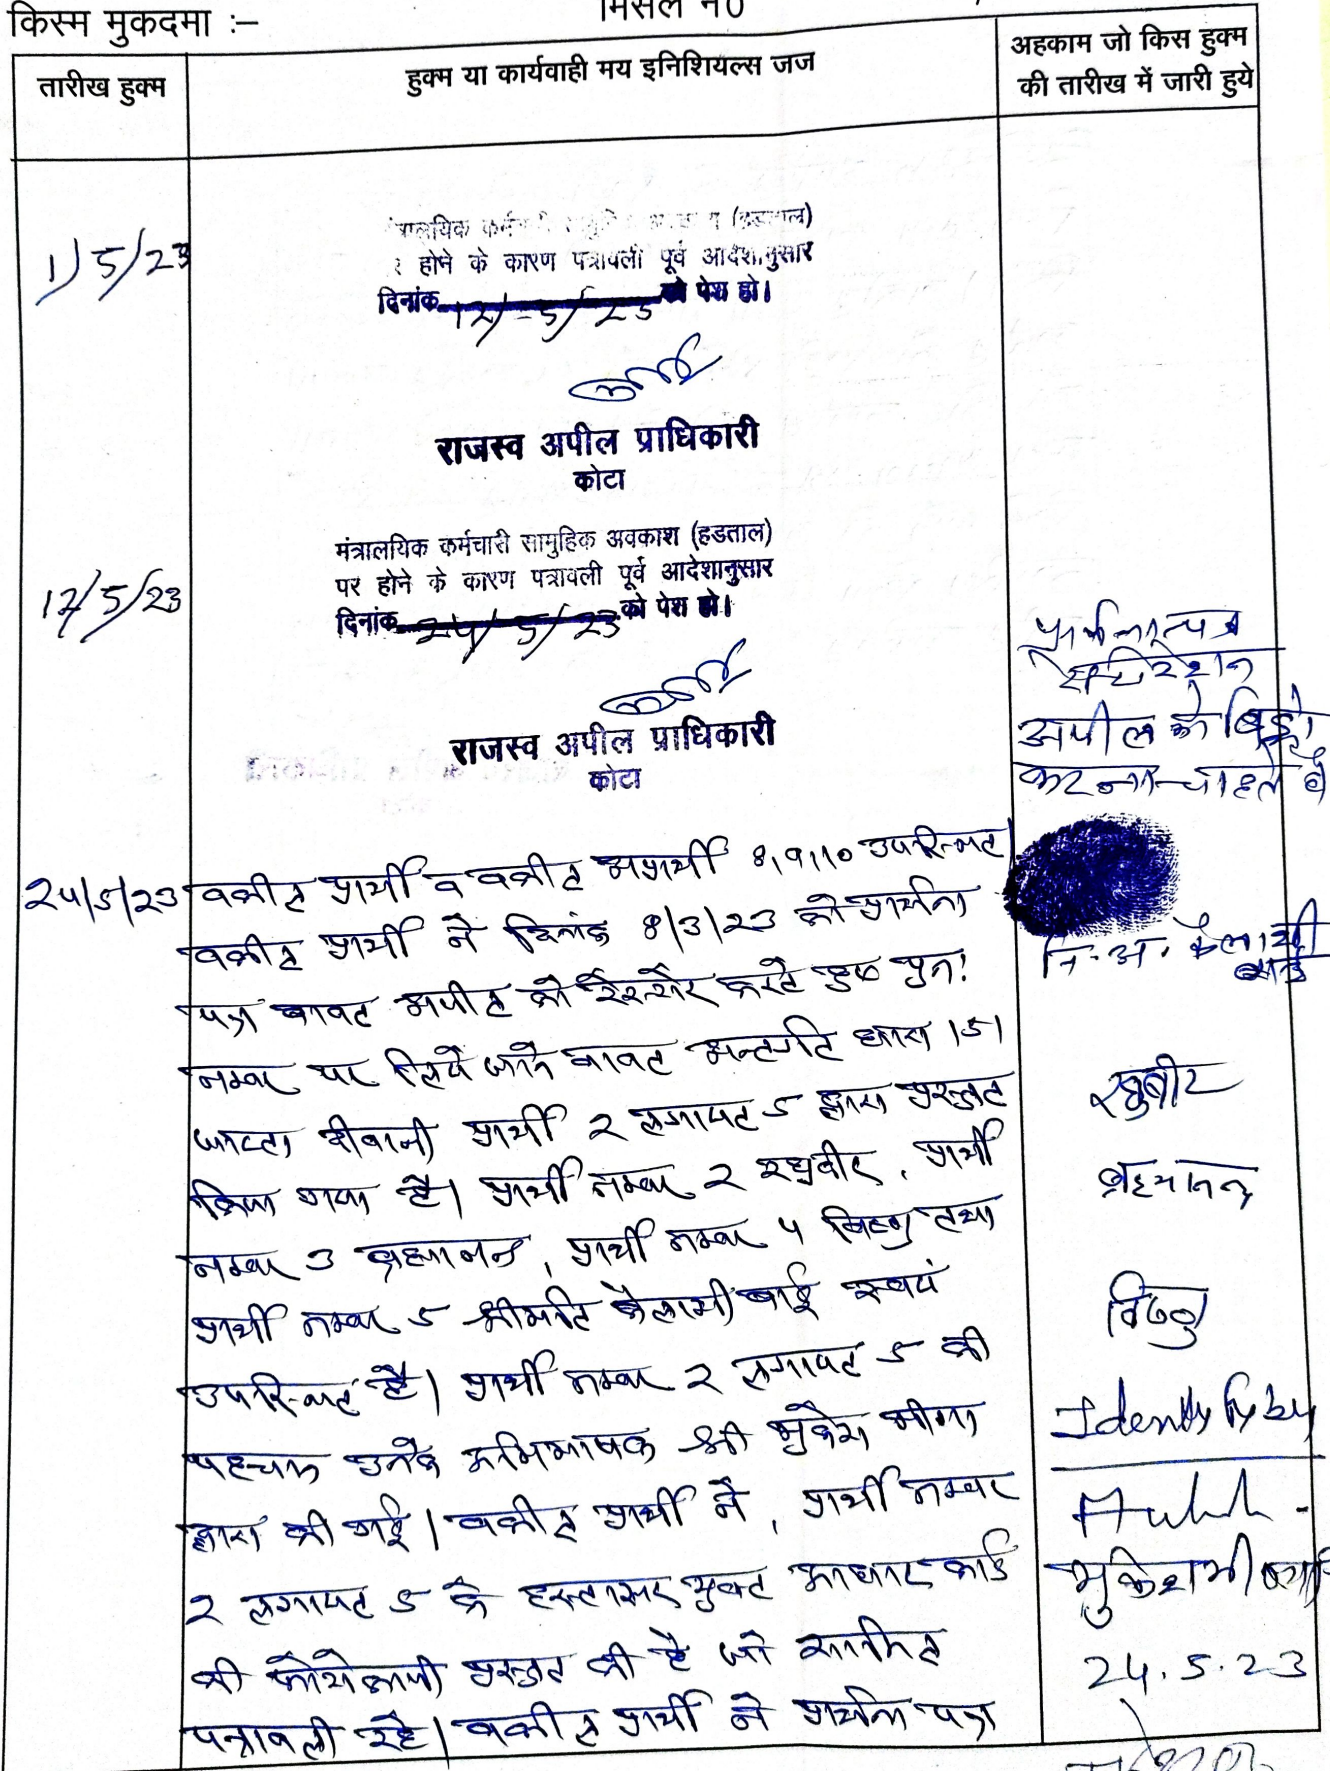 किस्म मुकदमा :–
मिसल न0
तारीख हुक्म
हुक्म या कार्यवाही मय इनिशियल्स जज
अहकाम जो किस हुक्म
की तारीख में जारी हुये
1/5/23
(हडताल)
होने के कारण पत्रावली पूर्व आदेशानुसार
दिनांक 12/5/23 को पेश हो।
राजस्व अपील प्राधिकारी
कोटा
12/5/23
मंत्रालयिक कर्मचारी सामुहिक अवकाश (हडताल)
पर होने के कारण पत्रावली पूर्व आदेशानुसार
दिनांक 24/5/23 को पेश हो।
राजस्व अपील प्राधिकारी
कोटा
24/5/23
वकील प्रार्थी व वकील अप्रार्थी 8,9,10 उपस्थित।
वकील प्रार्थी ने दिनांक 8/3/23 को प्रार्थना
पत्र बाबत अपील को रेस्टोर करते हुए पुनः
नम्बर पर लिये जाने बाबत अन्तर्गत धारा 151
जाप्ता दीवानी प्रार्थी 2 लगायत 5 द्वारा प्रस्तुत
किया गया है। प्रार्थी नम्बर 2 रघुवीर, प्रार्थी
नम्बर 3 ब्रह्मानन्द, प्रार्थी नम्बर 4 विष्णु तथा
प्रार्थी नम्बर 5 श्रीमति कैलाशी बाई स्वयं
उपस्थित है। प्रार्थी नम्बर 2 लगायत 5 की
पहचान उनके अभिभाषक श्री मुकेश मीणा
द्वारा की गई। वकील प्रार्थी ने, प्रार्थी नम्बर
2 लगायत 5 के हस्ताक्षर युक्त आधार कार्ड
की फोटोकापी प्रस्तुत की है जो शामिल
पत्रावली रहे। वकील प्रार्थी ने प्रार्थना पत्र
प्रार्थना पत्र
अपील को विड्रो
करना चाहते है
नि.अ. कैलाशी
बाई
रघुबीर
ब्रह्मानन्द
विष्णु
Identify by
मुकेश मीणा
24.5.23